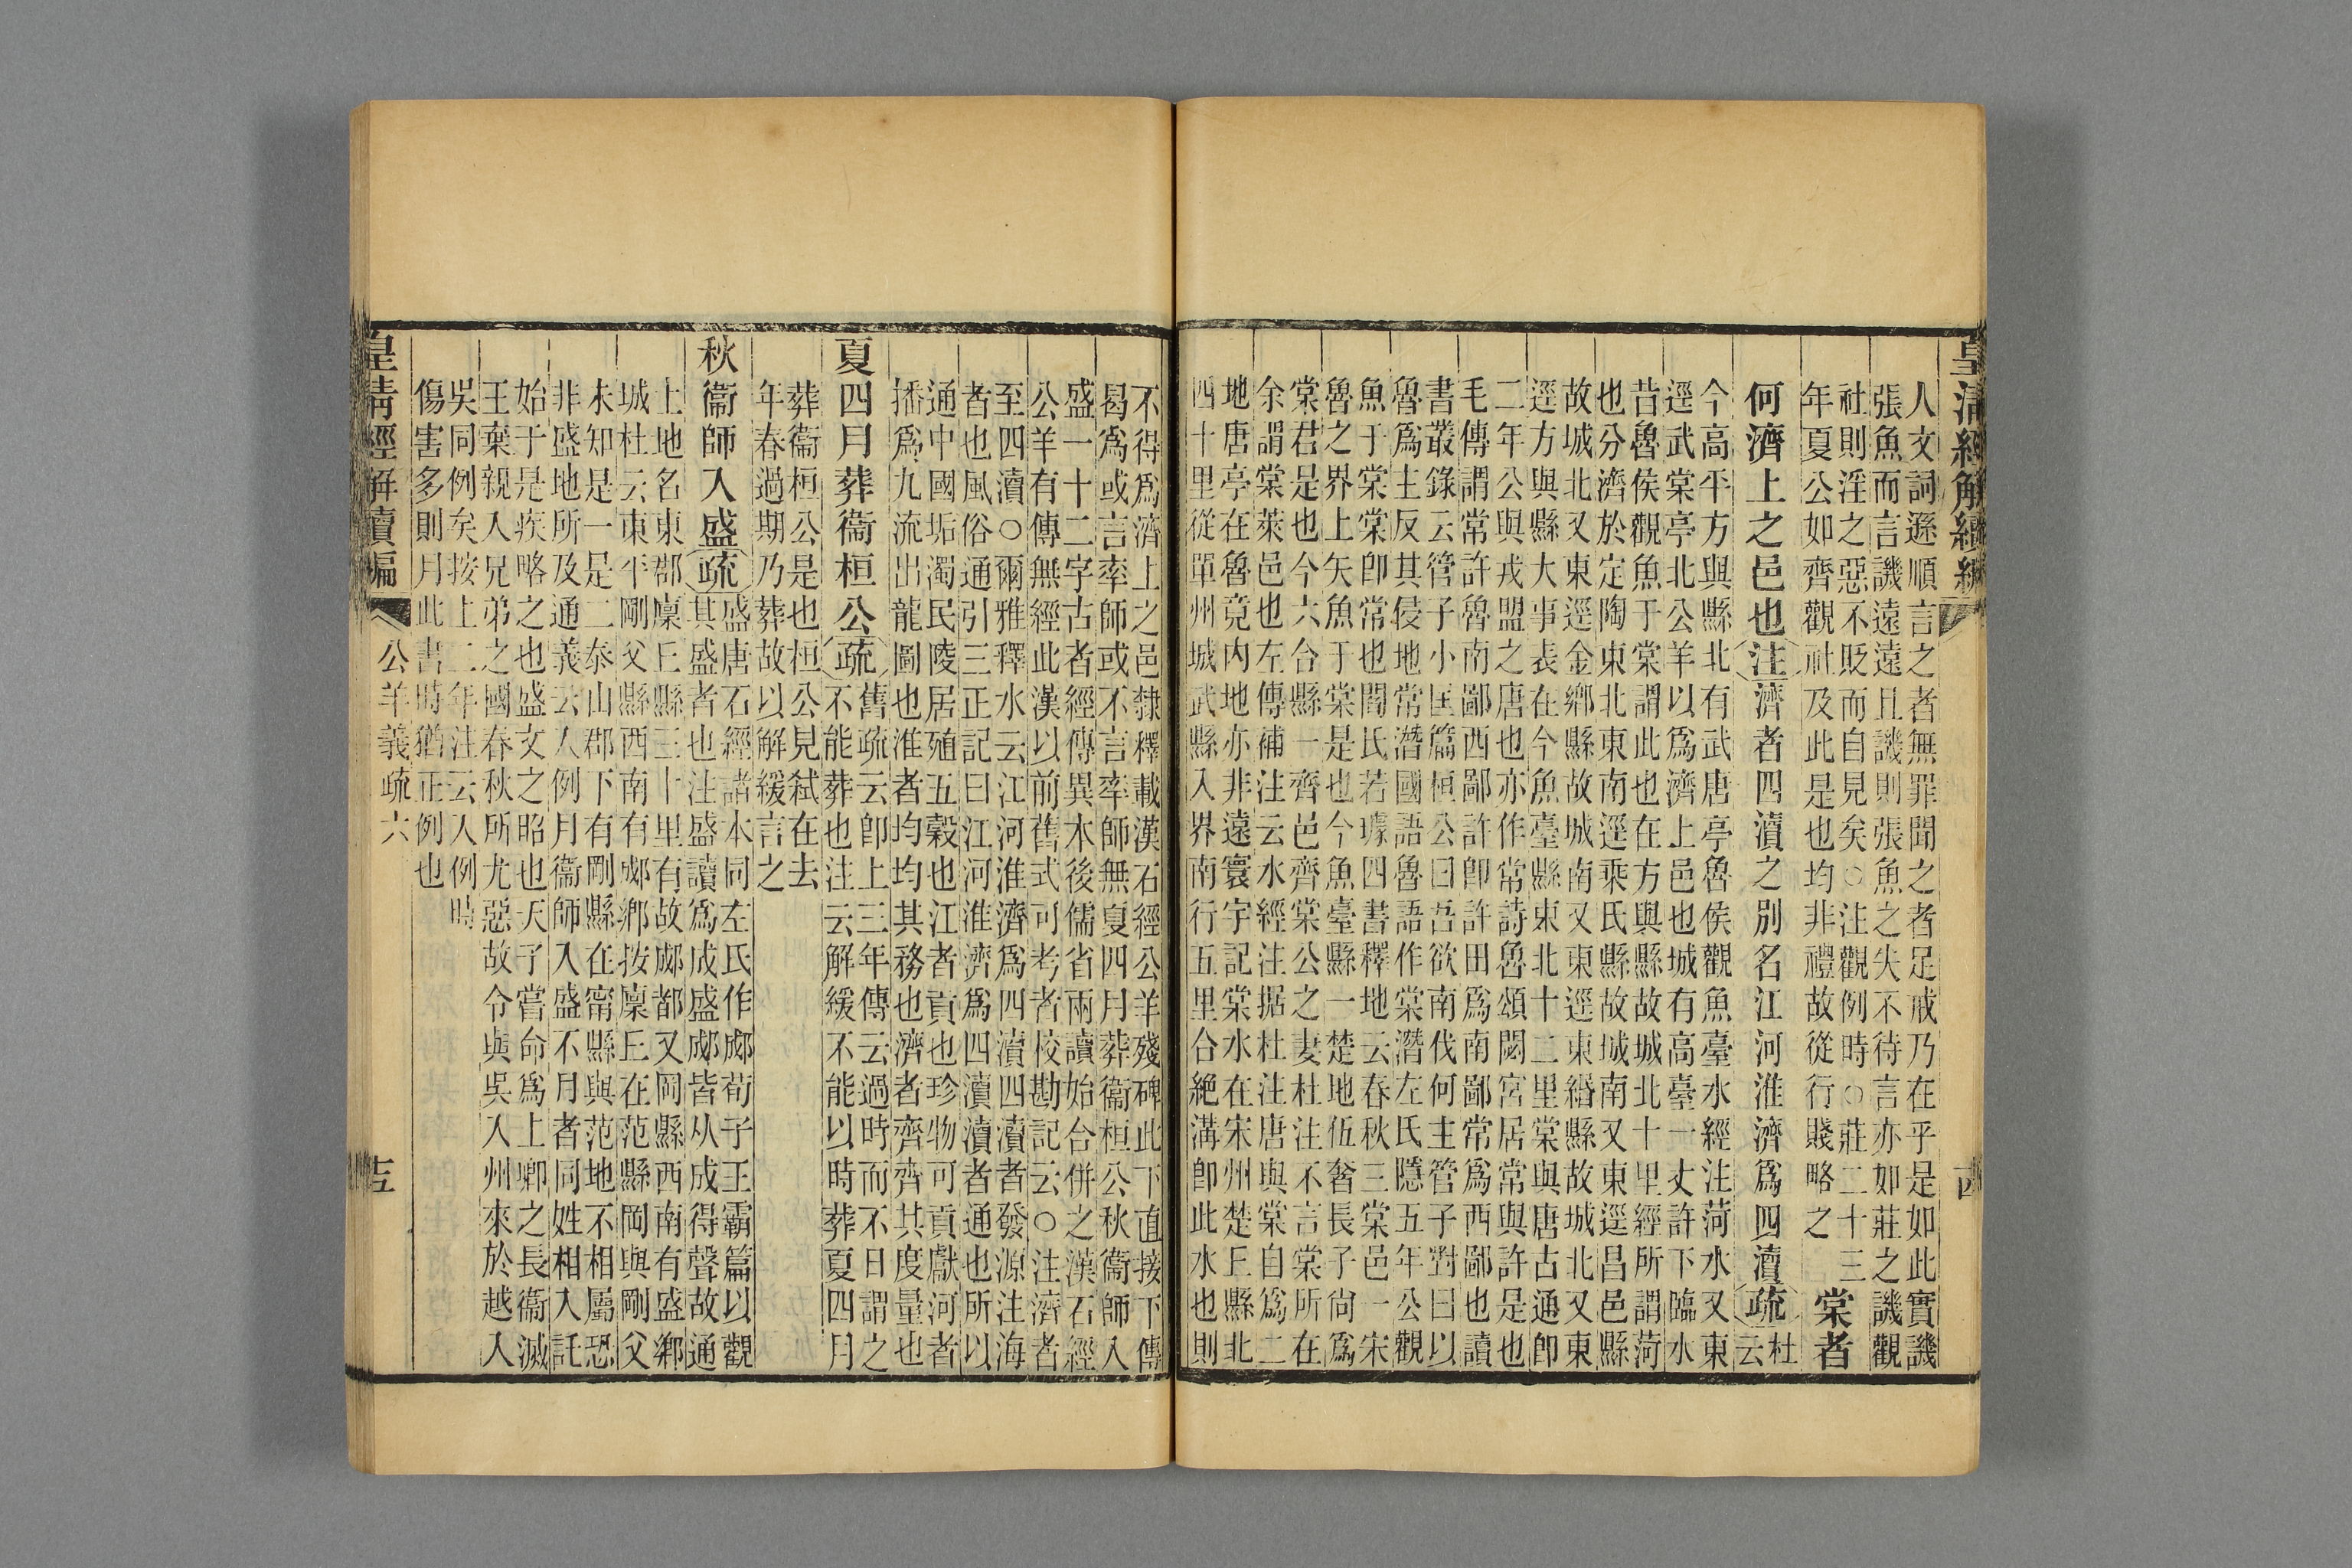 皇清經解續編
人文詞遜順言之者無罪聞之者足戒乃在乎是如此實譏
張魚而言譏遠遠且譏則張魚之失不待言亦如莊之譏觀
社則淫之惡不貶而自見矣○注觀例時○莊二十三
年夏公如齊觀社及此是也均非禮故從行賤略之
棠者
何濟上之邑也注濟者四瀆之別名江河淮濟爲四瀆疏
杜
云
今高平方與縣北有武唐亭魯侯觀魚臺水經注菏水又東
逕武棠亭北公羊以爲濟上邑也城有高臺一丈許下臨水
昔魯侯觀魚于棠謂此也在方與縣故城北十里經所謂菏
也分濟於定陶東北東南逕乘氏縣故城南又東逕昌邑縣
故城北又東逕金鄉縣故城南又東逕東緡縣故城北又東
逕方與縣大事表在今魚臺縣東北十二里棠與唐古通卽
二年公與戎盟之唐也亦作常詩魯頌閟宮居常與許是也
毛傳謂常許魯南鄙西鄙許卽許田爲南鄙常爲西鄙也讀
書叢錄云管子小匡篇桓公曰吾欲南伐何主管子對曰以
魯爲主反其侵地常潛國語魯語作棠潛左氏隱五年公觀
魚于棠棠卽常也閻氏若璩四書釋地云春秋三棠邑一宋
魯之界上矢魚于棠是也今魚臺縣一楚地伍奢長子尙爲
棠君是也今六合縣一齊邑齊棠公之妻杜注不言棠所在
余謂棠萊邑也左傳補注云水經注据杜注唐與棠自爲二
地唐亭在魯竟內地亦非遠寰宇記棠水在宋州楚丘縣北
四十里從單州城武縣入界南行五里合絶溝卽此水也則
不得爲濟上之邑隸釋載漢石經公羊殘碑此下直接下傳
曷爲或言率師或不言率師無夏四月葬衞桓公秋衞師入
盛一十二字古者經傳異本後儒省兩讀始合併之漢石經
公羊有傳無經此漢以前舊式可考者校勘記云○注濟者
至四瀆○爾雅釋水云江河淮濟爲四瀆四瀆者發源注海
者也風俗通引三正記曰江河淮濟爲四瀆瀆者通也所以
通中國垢濁民陵居殖五穀也江者貢也珍物可貢獻河者
播爲九流出龍圖也淮者均均其務也濟者齊齊其度量也
夏四月葬衞桓公疏
舊疏云卽上三年傳云過時而不日謂之
不能葬也注云解緩不能以時葬夏四月
葬衞桓公是也桓公見弒在去
年春過期乃葬故以解緩言之
秋衞師入盛疏
盛唐石經諸本同左氏作郕荀子王霸篇以觀
其盛者也注盛讀爲成盛郕皆从成得聲故通
上地名東郡廩丘縣三十里有故郕都又岡縣西南有盛鄉
城杜云東平剛父縣西南有郕鄉按廩丘在范縣岡與剛父
未知是一是二泰山郡下有剛縣在甯縣與范地不相屬恐
非盛地所及通義云入例月衞師入盛不月者同姓相入託
始于是疾略之也盛文之昭也天子嘗命爲上卿之長衞滅
王棄親入兄弟之國春秋所尤惡故令與吳入州來於越入
吳同例矣按上二年注云入例時
傷害多則月此書時猶正例也
皇清經解續編
公羊義疏六